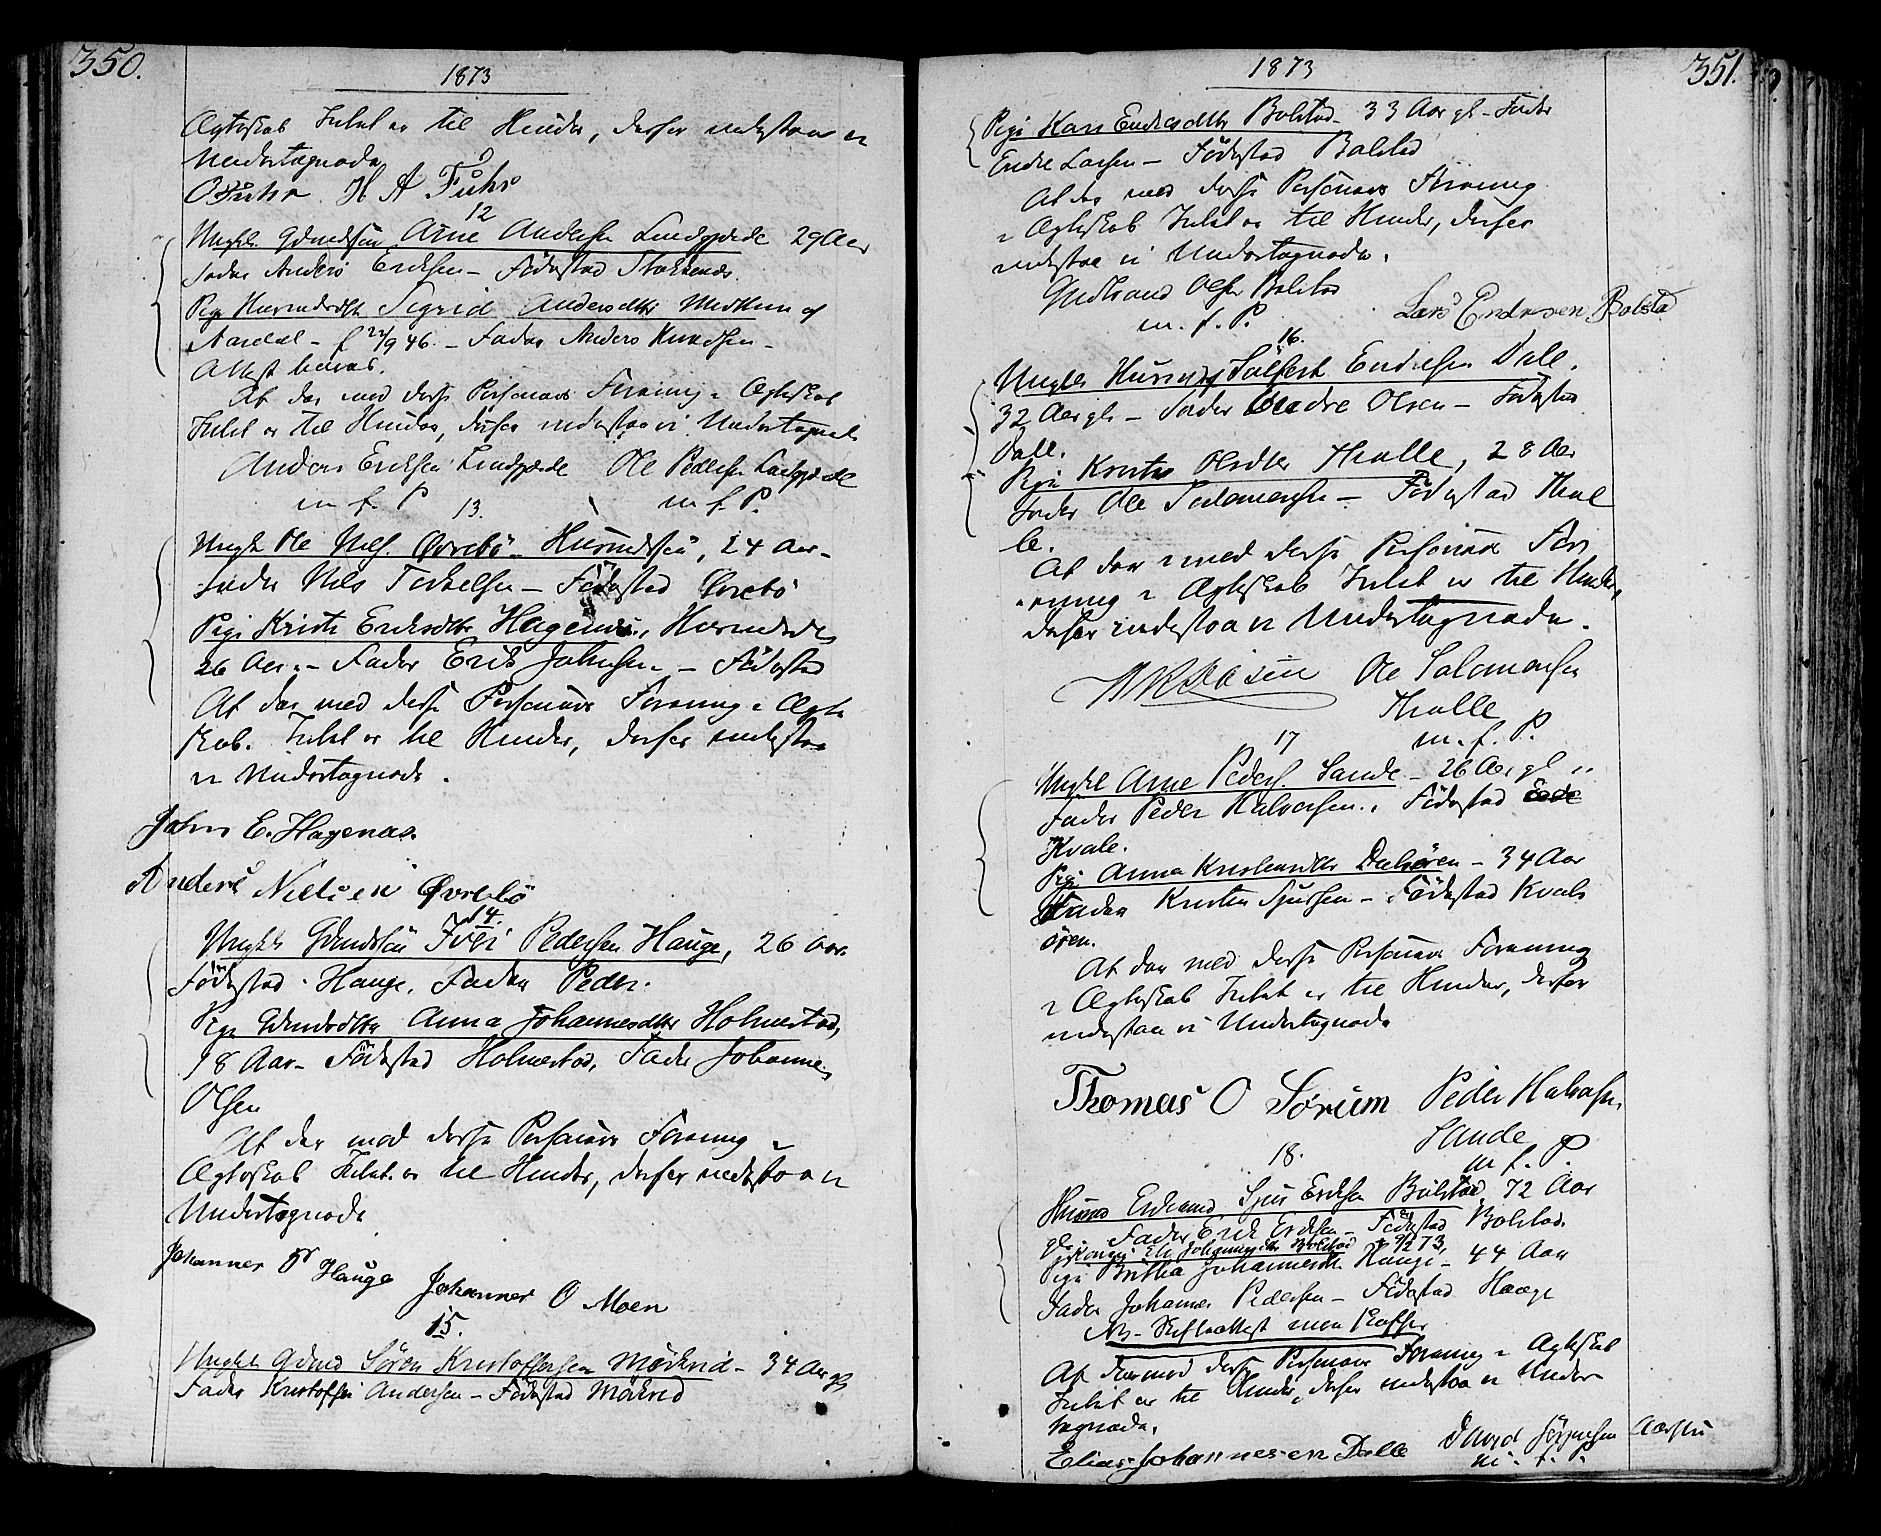 350.
1873
Ægteskab Intet er til Hinder, derfor indestaa vi
Undertegnede
O Fuhr H A Fuhr
12
Ungk. Gdmdsøn Arne Andersen Lindgjerde 29 Aar
Fader Anders Eriksen – Fødested
Pige Husmdsdtr Sigrid Andersdtr af
Aardal – f 22/9 46. – Fader Anders Knudsen –
Attest
At der med disse Personers Forening i Ægteskab
Intet er til Hinder, derfor indestaa vi Undertegnede
Anders Eriksen Lindgjerde Ole Pedersen
m. f. P m. f. P.
13.
Ungk Ole Nils. Øvrebö – Husmdsøn, 24 Aar –
Fader Nils Terkelsen – Födested Øvrebö
Pige Kristi Eriksdtr Hagenæs, Husmdsdtr
26 Aar. – Fader Erik Johnsen – Födested
At der med disse Personers Forening i Ægte
skab. Intet er til Hinder, derfor indestaa
vi Undertegnede.
John E. Hagenæs.
Anders Nielsen Øvrebö
14.
Ungk Gdmdsøn Iver Pedersen Hauge, 26 Aar.
Födested Hauge, Fader Peder.
Pige Gdmdsdtr Anna Johannesdtr Holmestad,
18 Aar – Födested Holmestad, Fader Johannes
Olsen
At der med disse Personers Forening i
Ægteskab Intet er til Hinder, derfor indestaa vi
Undertegnede
Johannes P Hauge Johannes O Moen
15.
Ungk Gdmd Sören Kristoffersen Mörkrid – 34 Aar gl
Fader Kristoffer Andersen – Födested Mörkrid
351.
1873
Pige Kari Endresdtr Bolstad – 33 Aar gl – Fader
Endre Larsen – Födested Bolstad
At der med disse Personers Forening
i Ægteskab Intet er til Hinder, derfor
indestaa vi Undertegnede.
Guttorm Olsen Bolstad
m. f. P. Lars Endresen Bolstad
16.
Ungk Husmd Sölfest Endresen Dale.
32 Aar gl – Fader Endre Olsen – Födested
Dale.
Pige Kristi Olsdtr Thalle, 28 Aar
Fader Ole Salomonsen – Födested Thal
le.
At der med disse Personers For
ening i Ægteskab Intet er til Hinder,
derfor indestaa vi Undertegnede.
Ole Salomonsen
Thalle
m. f. P.
17
Ungk Arne Peders. Sande – 26 Aar gl
Fader Peder Halvorsen, Födested
Kvale.
Pige Anna Kristensdtr Dalsören – 34 Aar
Fader Kristen Sjursen – Födested Kvals
ören.
At der med disse Personers Forening
i Ægteskab Intet er til Hinder, derfor
indestaa vi Undertegnede
Thomas O Sörum Peder Halvorsen
Sande
m. f. P.
18.
Husmd Enkemd Sjur Eriksen Bolstad, 72 Aar
gl. Fader Erik Eriksen – Födested Bolstad.
Johannesdtr Bolstad † 9/2 73,
Pige Britha Johannesdtr Hauge – 44 Aar
Fader Johannes Pedersen – Födested Hauge
NB – Skifteattest
At der med disse Personers Forening i Ægteskab
Intet er til Hinder, derfor indestaa vi Under-
tegnede.
Elias Johannesen Dalle David Jörgensen
m. f. P.